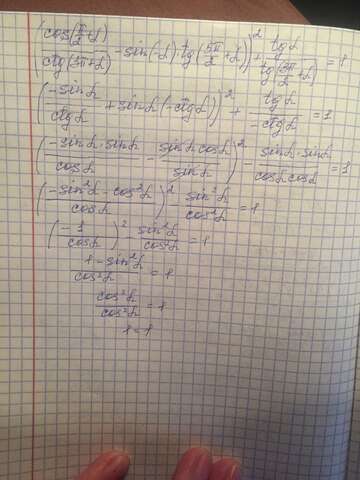 (cos(π/2+α)/ctg(3π+α) - sin(-α)·tg(5π/2+α))² + tgα/tg(3π/2+α) = 1
(-sinα/ctgα + sinα(-ctgα))² + tgα/-ctgα = 1
(-sinα·sinα/cosα - sinα cosα/sinα)² - sinα·sinα/cosα cosα = 1
(-sin²α-cos²α/cosα)² - sin²α/cos²α = 1
(-1/cosα)² - sin²α/cos²α = 1
1-sin²α/cos²α = 1
cos²α/cos²α = 1
1=1